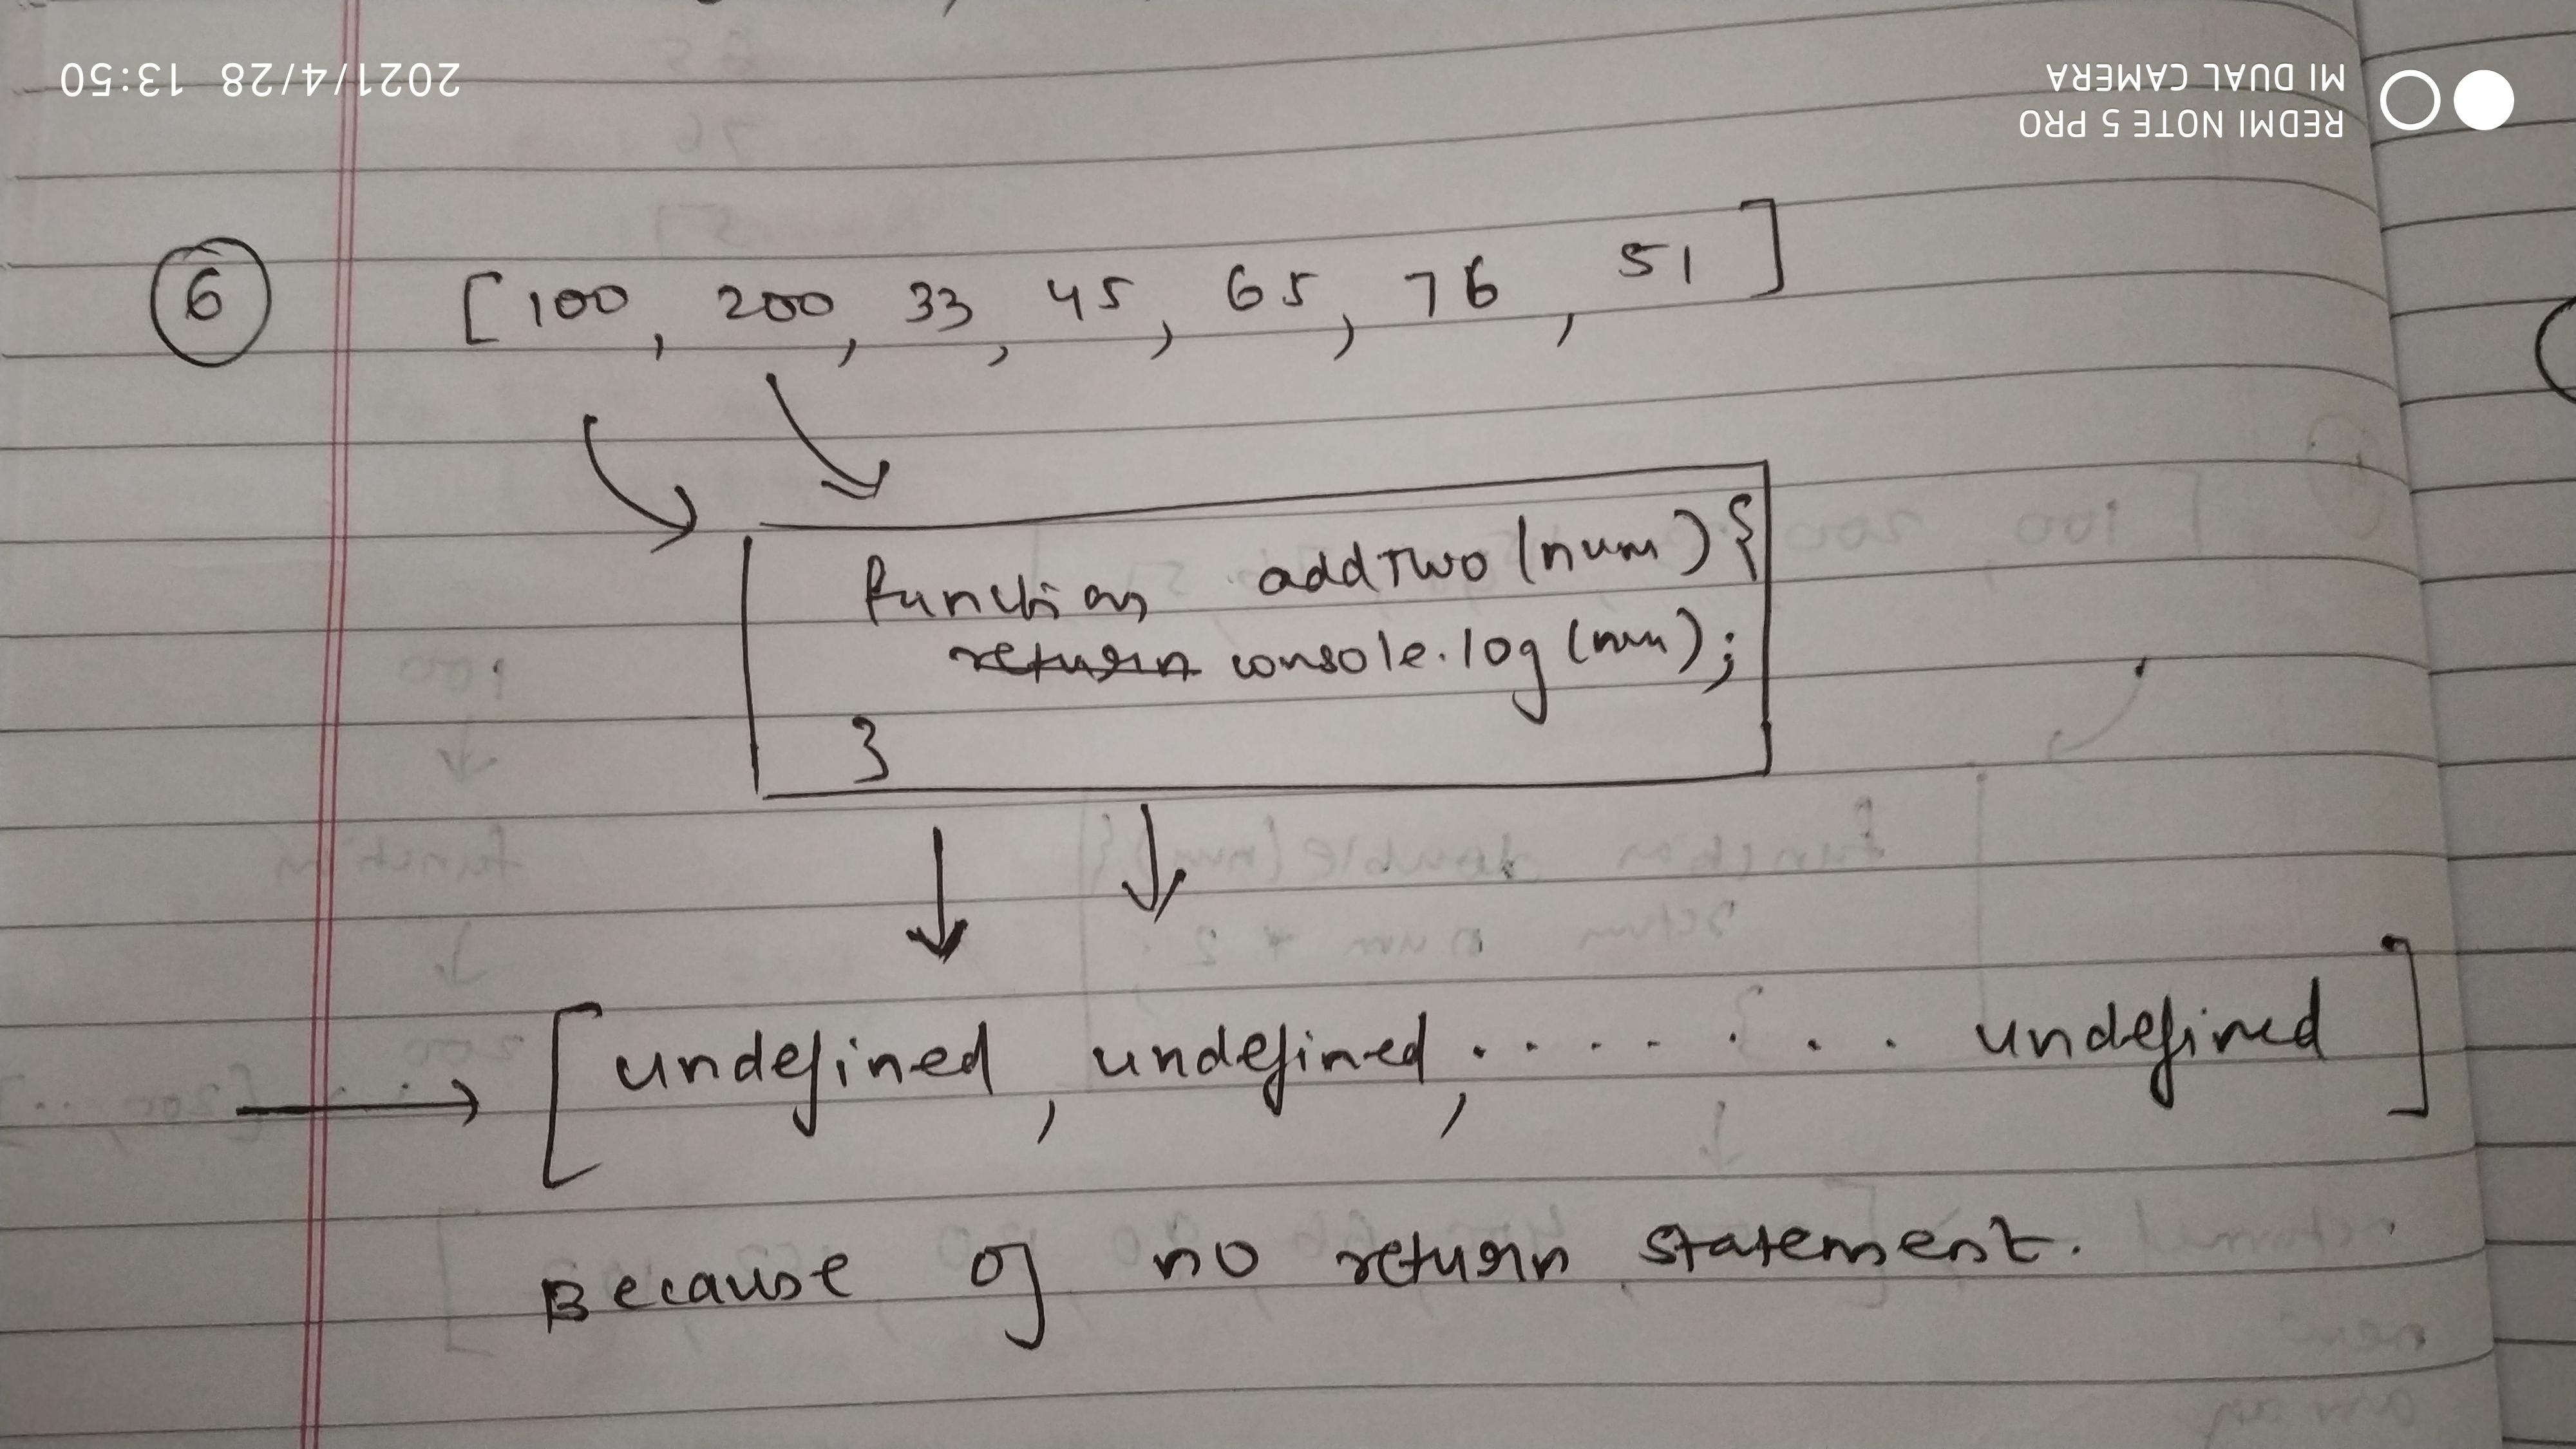 2021/4/28 13:50
REDMI NOTE 5 PRO
MI DUAL CAMERA
6 [100, 200, 33, 45, 65, 76, 51]
function addTwo (num) {
return console.log (num);
}
[undefined, undefined, . . . . . . . undefined]
Because of no return statement.